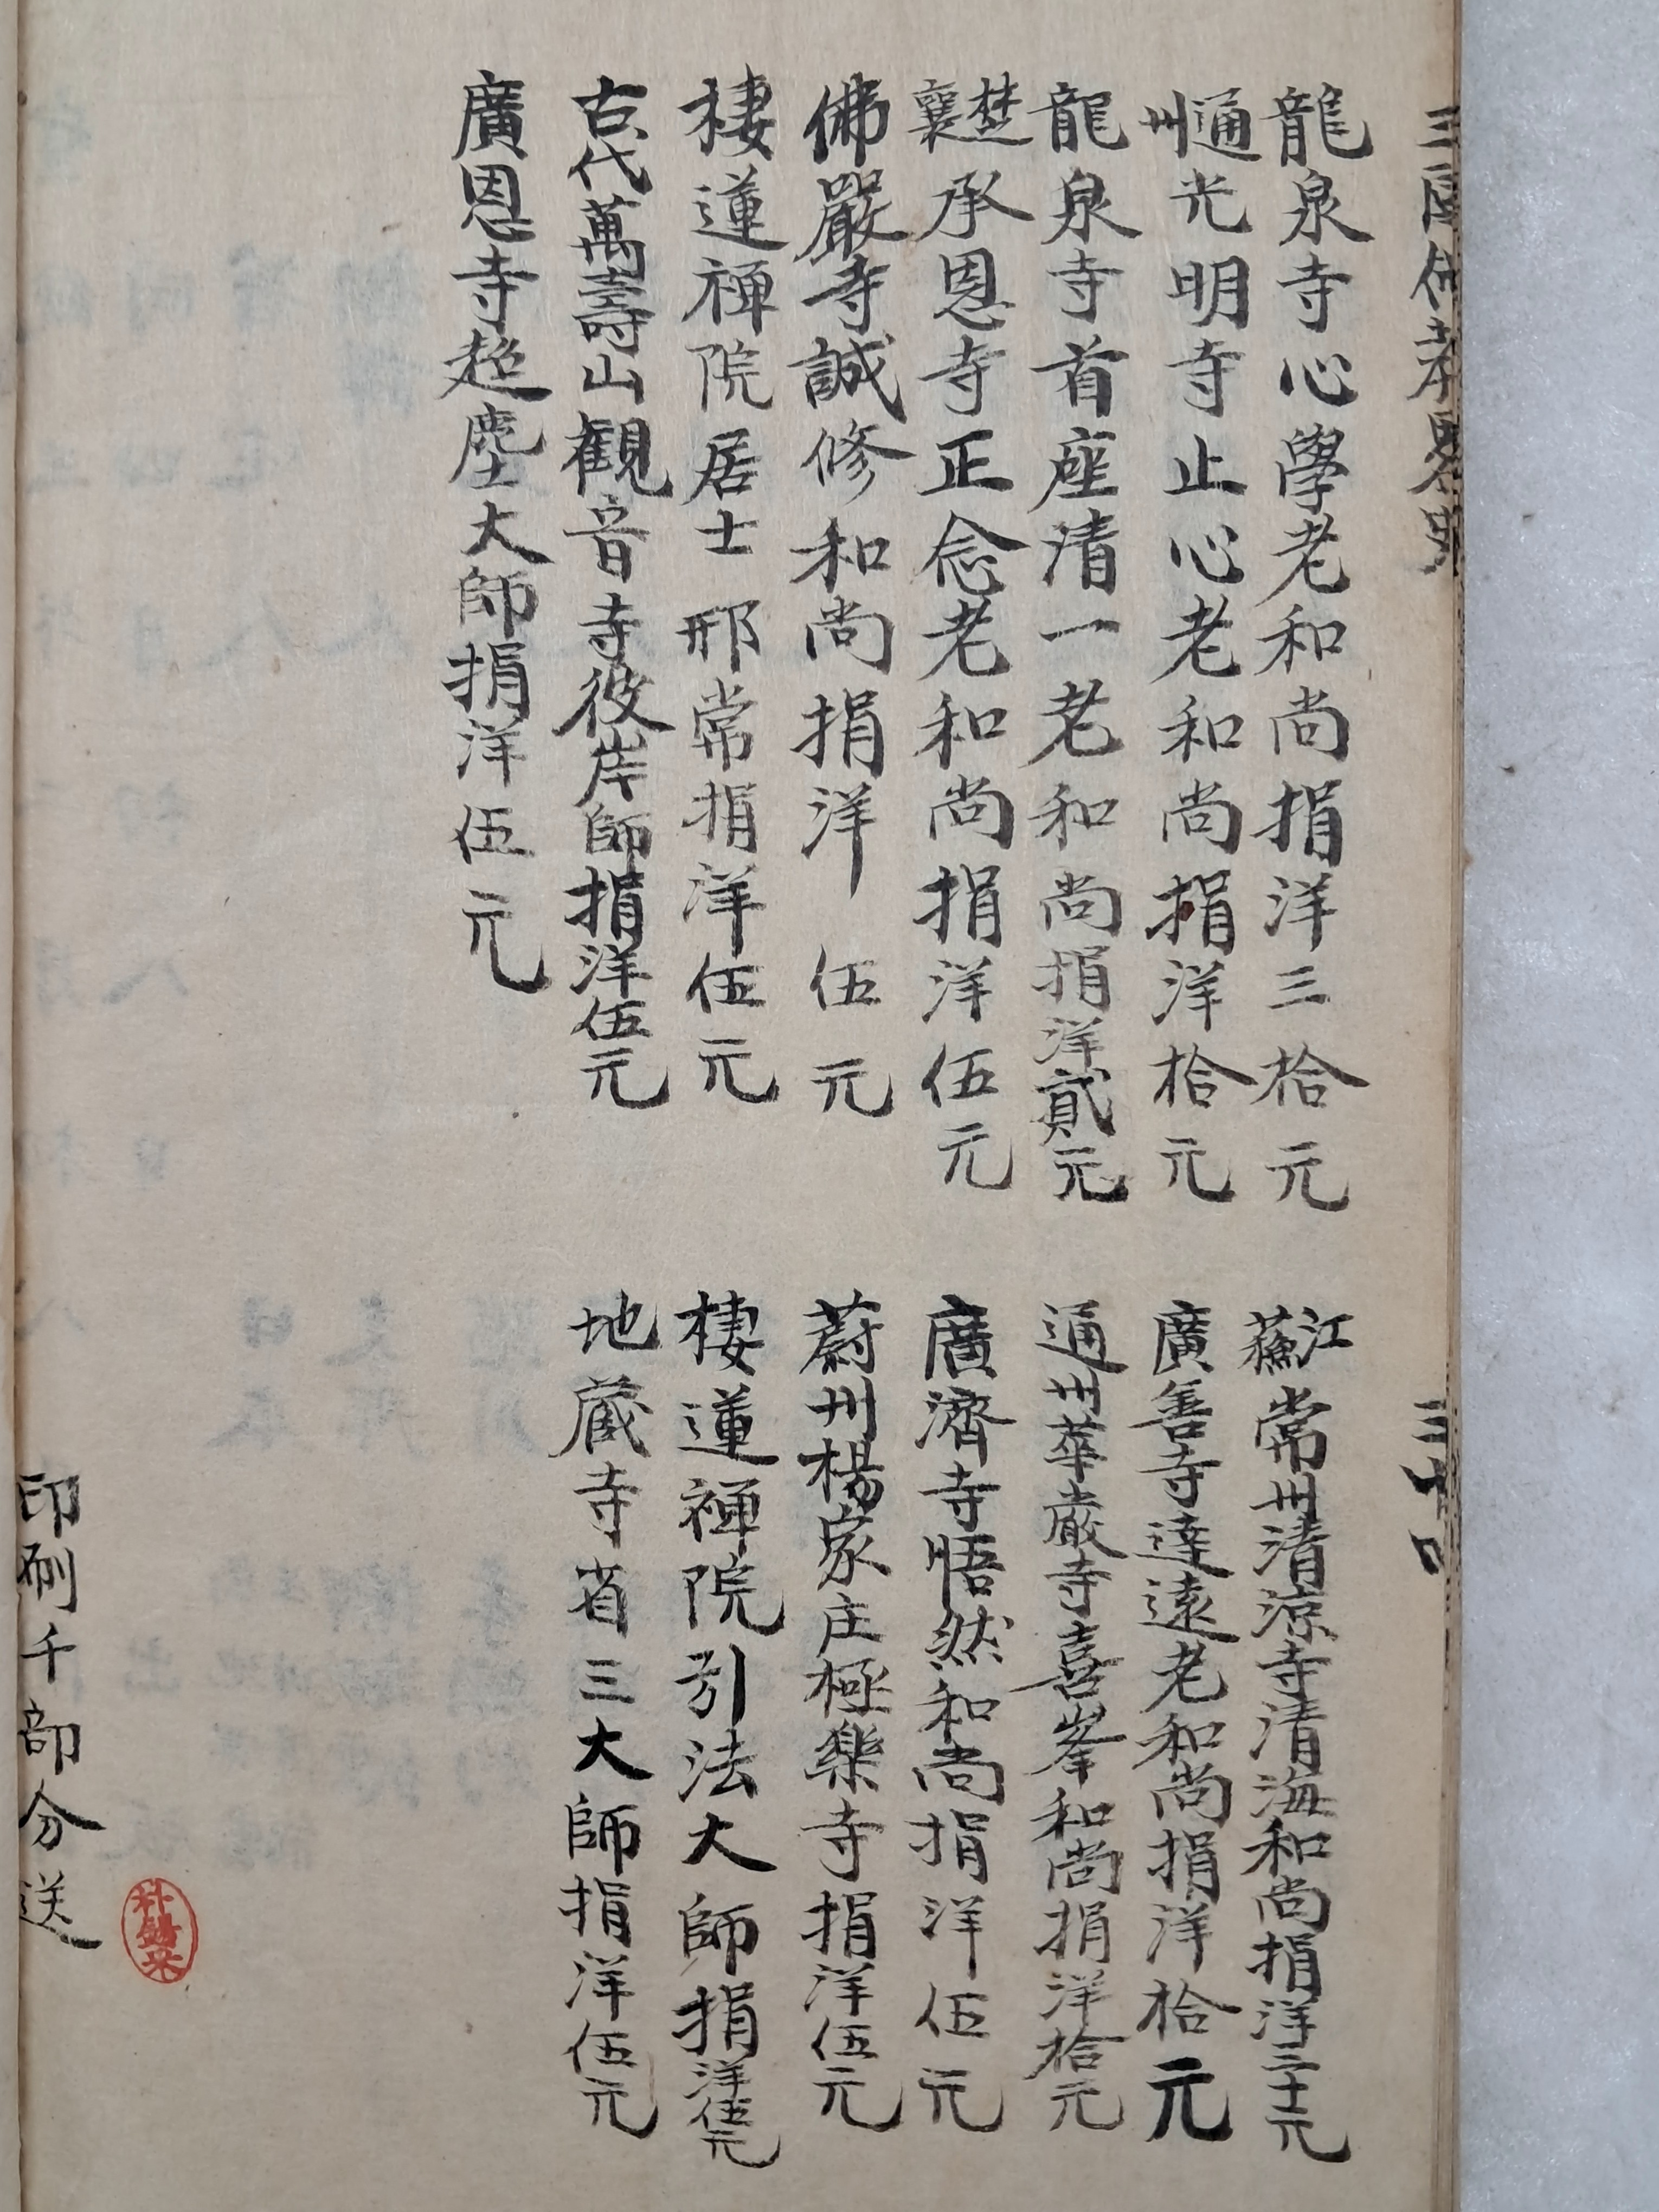 龍泉寺心學老和尚捐洋三拾元
通州光明寺止心老和尚捐洋拾元
龍泉寺首座清一老和尚捐洋貳元
楚襄承恩寺正念老和尚捐洋伍元
佛嚴寺誠修和尚捐洋伍元
棲蓮禪院居士邢常捐洋伍元
古代萬壽山觀音寺彼岸師捐洋伍元
廣恩寺超塵大師捐洋伍元
江蘇常州清涼寺清海和尚捐洋三十元
廣善寺達遠老和尚捐洋拾元
通州華嚴寺喜峯和尚捐洋拾元
廣濟寺悟然和尚捐洋伍元
蔚州楊家庄極樂寺捐洋伍元
棲蓮禪院引法大師捐洋伍元
地藏寺省三大師捐洋伍元
印刷千部分送